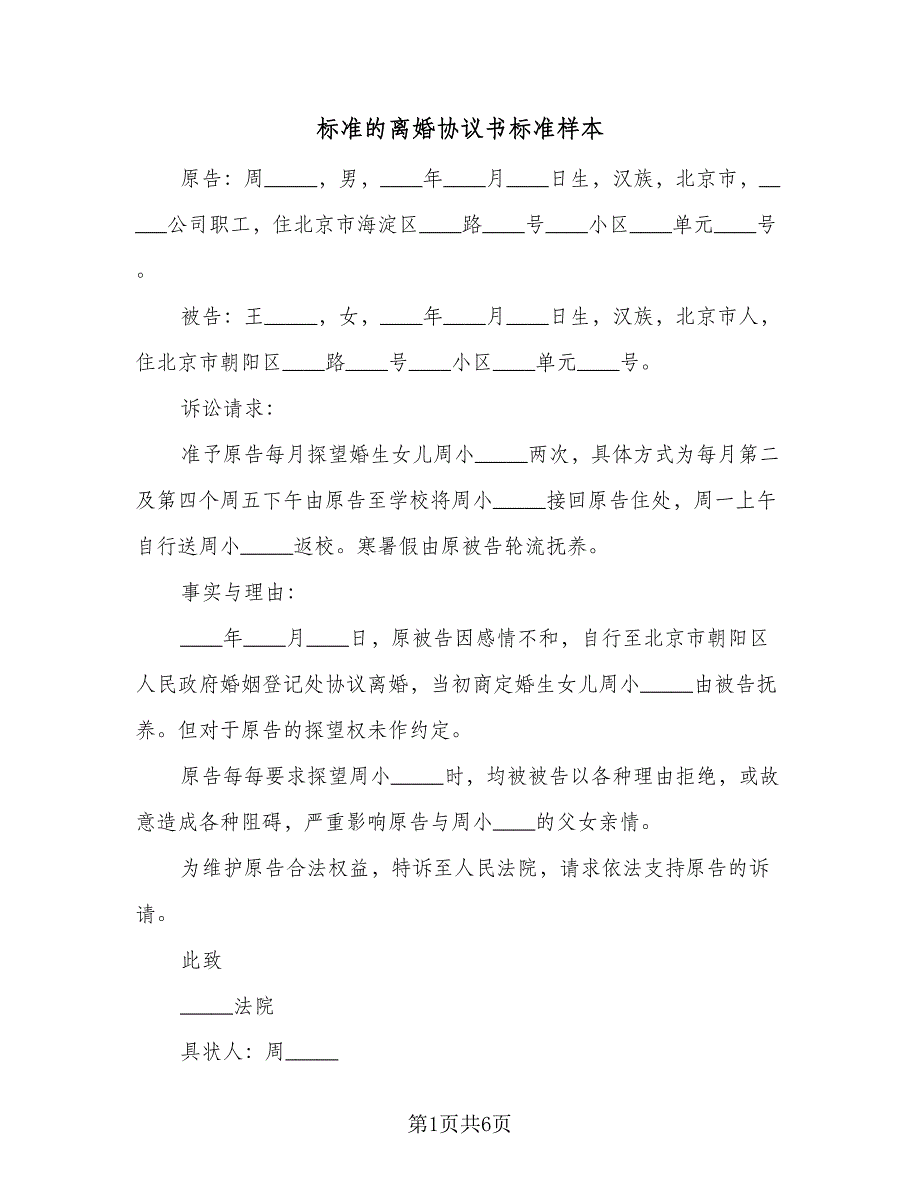 标准的离婚协议书标准样本
原告：周_____，男，____年____月____日生，汉族，北京市，__
___公司职工，住北京市海淀区____路____号____小区____单元____号
。
被告：王_____，女，____年____月____日生，汉族，北京市人，
住北京市朝阳区____路____号____小区____单元____号。
诉讼请求：
准予原告每月探望婚生女儿周小_____两次，具体方式为每月第二
及第四个周五下午由原告至学校将周小_____接回原告住处，周一上午
自行送周小_____返校。寒暑假由原被告轮流抚养。
事实与理由：
____年____月____日，原被告因感情不和，自行至北京市朝阳区
人民政府婚姻登记处协议离婚，当初商定婚生女儿周小_____由被告抚
养。但对于原告的探望权未作约定。
原告每每要求探望周小_____时，均被被告以各种理由拒绝，或故
意造成各种阻碍，严重影响原告与周小____的父女亲情。
为维护原告合法权益，特诉至人民法院，请求依法支持原告的诉
请。
此致
_____法院
具状人：周_____
第1页共6页